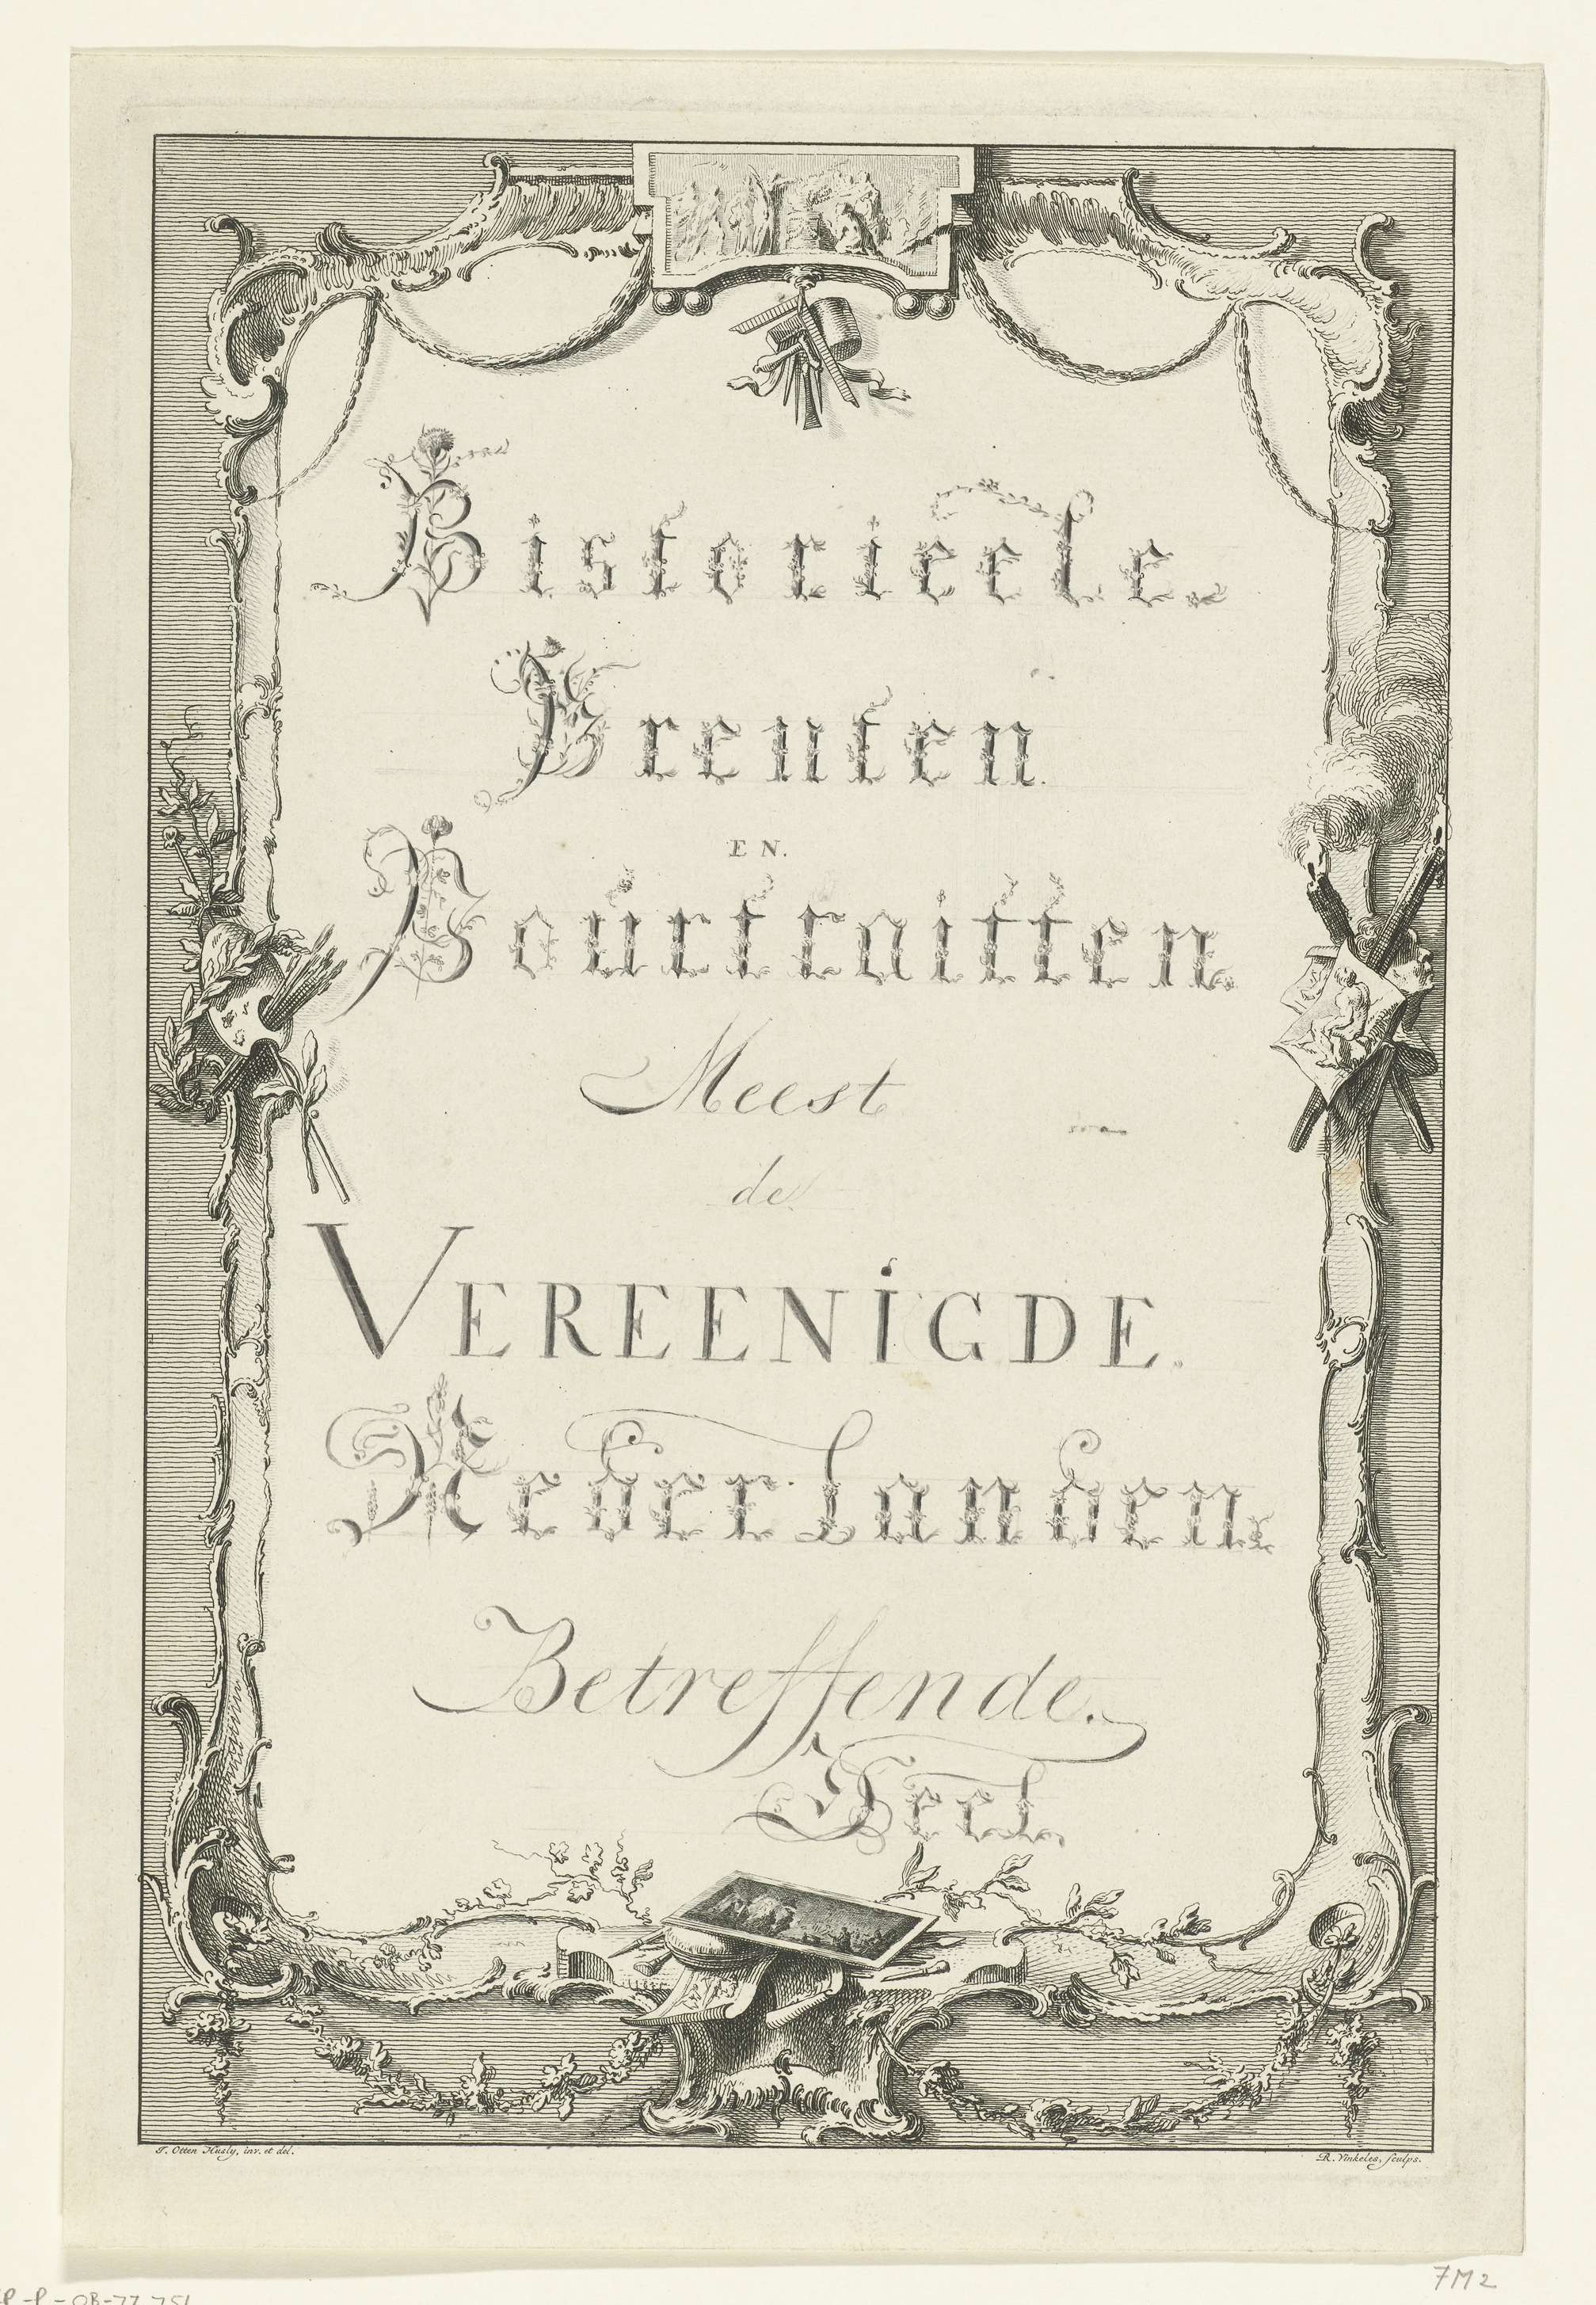 Historieele
Prenten.
EN.
Pourtraitten.
Meest
de
VEREENIGDE.
Nederlanden.
Betreffende.
1 Deel.
J. Otten Husly, inv. et del.
R. Vinkeles, sculps.
7M2